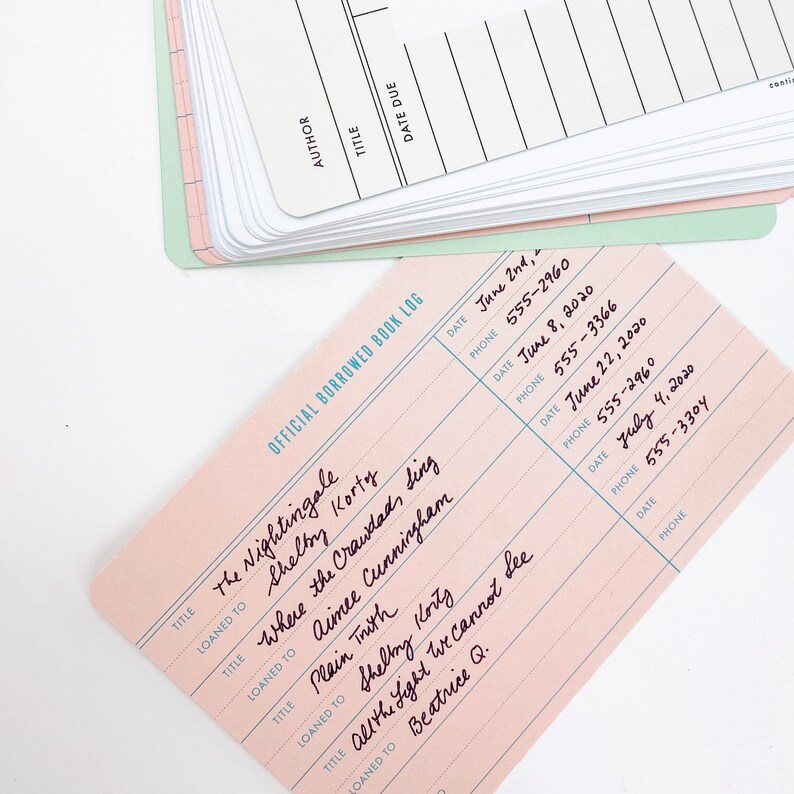 AUTHOR
TITLE
DATE DUE
OFFICIAL BORROWED BOOK LOG
TITLE The Nightingale DATE June 2nd,
LOANED TO Shelby Korty PHONE 555-2960
TITLE Where the Crawdads Sing DATE June 8, 2020
LOANED TO Aimee Cunningham PHONE 555-3366
TITLE Plain Truth DATE June 22, 2020
LOANED TO Shelby Korty PHONE 555-2960
TITLE All the Light We Cannot See DATE July 4, 2020
LOANED TO Beatrice Q. PHONE 555-3304
DATE
PHONE